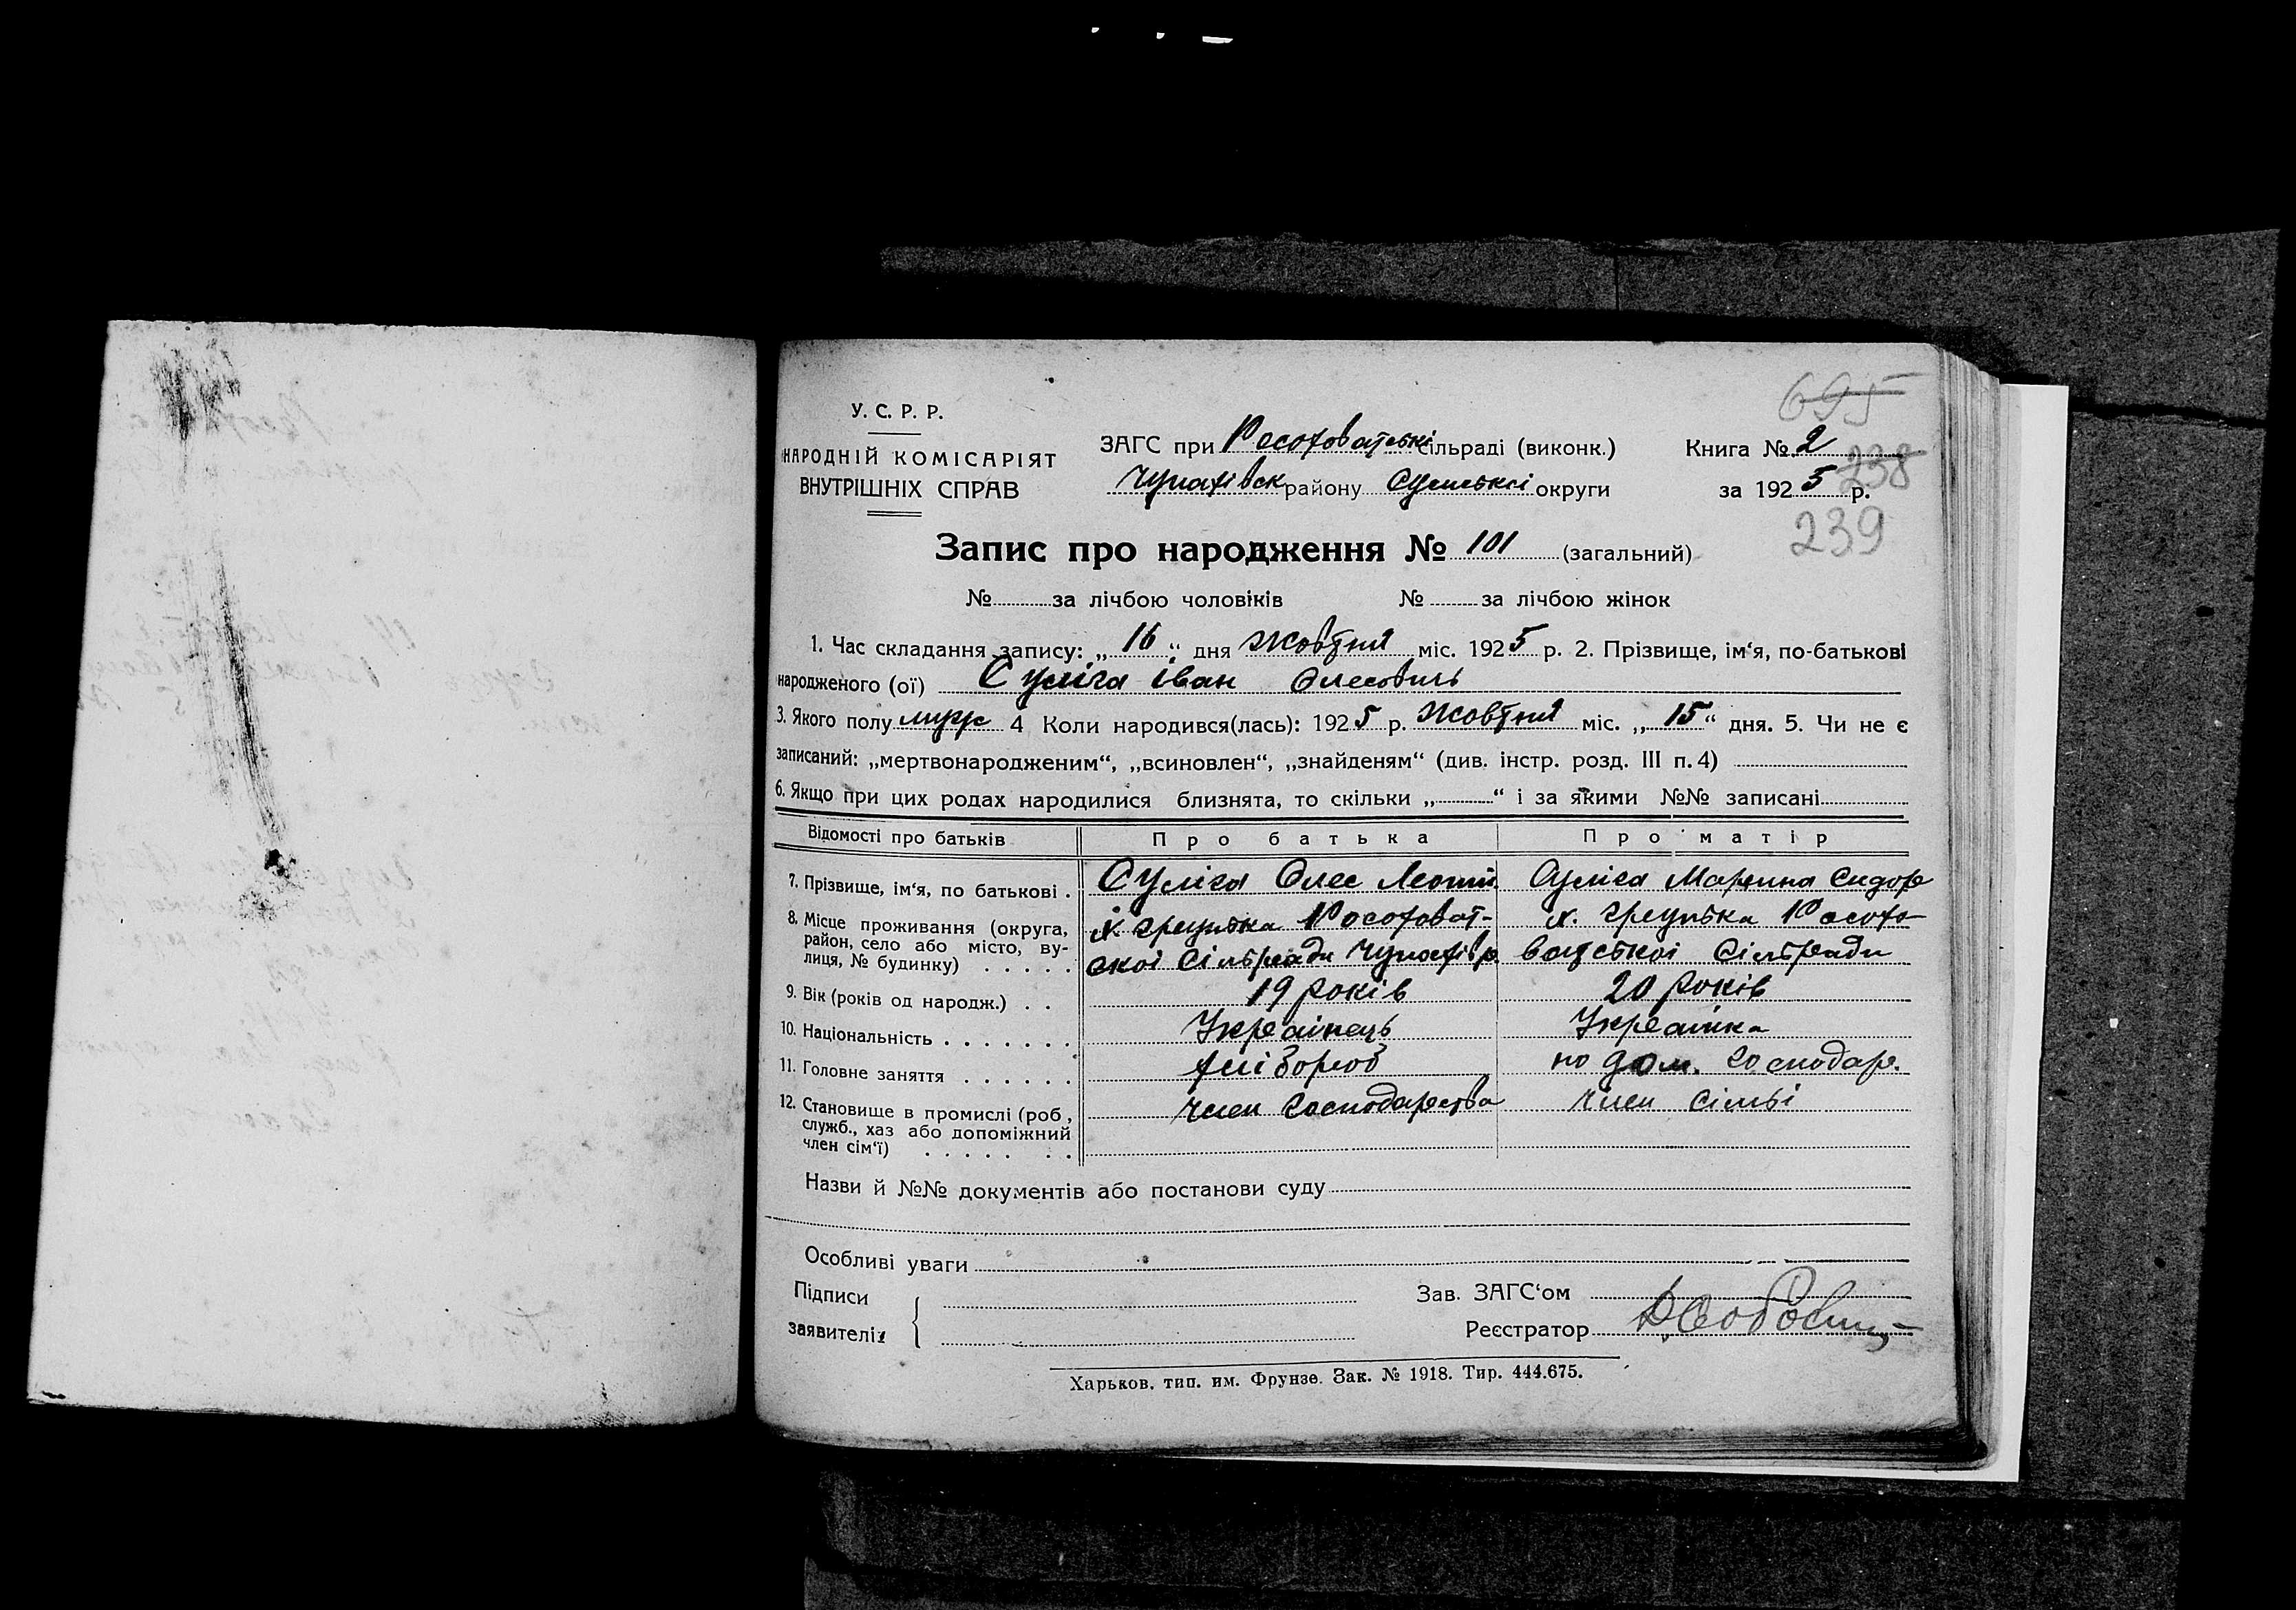 695
У. С. Р. Р.
НАРОДНІЙ КОМІСАРІЯТ
ВНУТРІШНІХ СПРАВ
ЗАГС при Росоховатські сільраді (виконк.)
Чупахівськ району Сумської округи
Книга № 2
238
за 1925 р.
239
Запис про народження № 101 (загальний)
№ за лічбою чоловіків № за лічбою жінок
1. Час складання запису: „16“ дня Жовтня міс. 1925 р. 2. Прізвище, ім‘я, по-батькові
народженого (ої) Суліга Іван Олесович
3. Якого полу муж 4 Коли народився(лась): 1925 р. Жовтня міс. „15“ дня. 5. Чи не є
записаний: „мертвонародженим“, „всиновлен“, „знайденям“ (див. інстр. розд. III п. 4)
6. Якщо при цих родах народилися близнята, то скільки „ “ і за якими №№ записані
Відомості про батьків Про батька Про матір
7. Прізвище, ім‘я, по батькові . Суліга Олес Суліга Марина Сидор
8. Місце проживання (округа, район, село або місто, вулиця, № будинку) . . . . .
х. Росоховат-
ської Сільради Чупахів р.
х. Росохо-
ватської Сільради
9. Вік (років од народж.) . . 19 років 20 років
10. Національність . . . . . . . Українець Українка
11. Головне заняття . . . . . . хлібороб по дом. господар.
12. Становище в промислі (роб, служб., хаз або допоміжний член сім‘ї) . . . . . . .
член господарства член сімьі
Назви й №№ документів або постанови суду
Особливі уваги
Підписи
заявителів
Зав. ЗАГС‘ом
Реєстратор
Харьков, тип. им. Фрунзе. Зак. № 1918. Тир. 444.675.